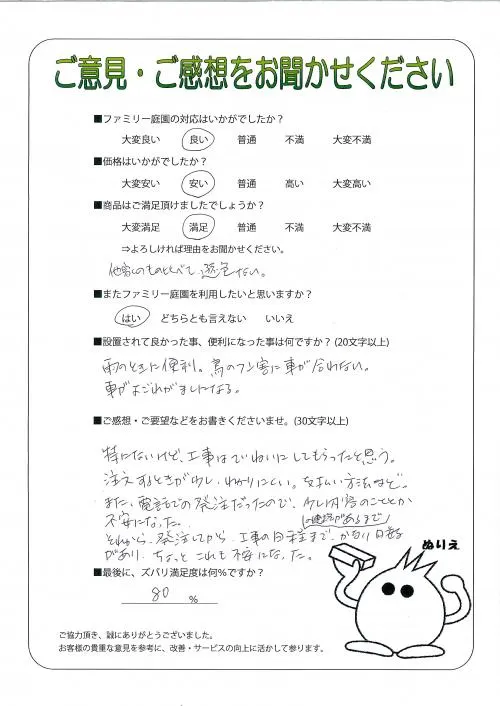 ご意見・ご感想をお聞かせください
■ファミリー庭園の対応はいかがでしたか？
大変良い 良い 普通 不満 大変不満
■価格はいかがでしたか？
大変安い 安い 普通 高い 大変高い
■商品はご満足頂けましたでしょうか？
大変満足 満足 普通 不満 大変不満
⇒よろしければ理由をお聞かせください。
他家のものとくらべて遜色ない。
■またファミリー庭園を利用したいと思いますか？
はい どちらとも言えない いいえ
■設置されて良かった事、便利になった事は何ですか？(20文字以上)
雨のときに便利。鳥のフン害に車が合わない。
車がよごれがましになる。
■ご感想・ご要望などをお書きくださいませ。(30文字以上)
特にないけど、工事はていねいにしてもらったと思う。
注文するときが少し、わかりにくい。支払い方法など。
また、電話での発注だったので、少し内容のこととか
不安になった。
それから、発注してから、工事の日程まで、かなり日数
があり、ちょっとこれも不安になった。
■最後に、ズバリ満足度は何%ですか？
80 %
ぬりえ
ご協力頂き、誠にありがとうございました。
お客様の貴重な意見を参考に、改善・サービスの向上に活かして参ります。